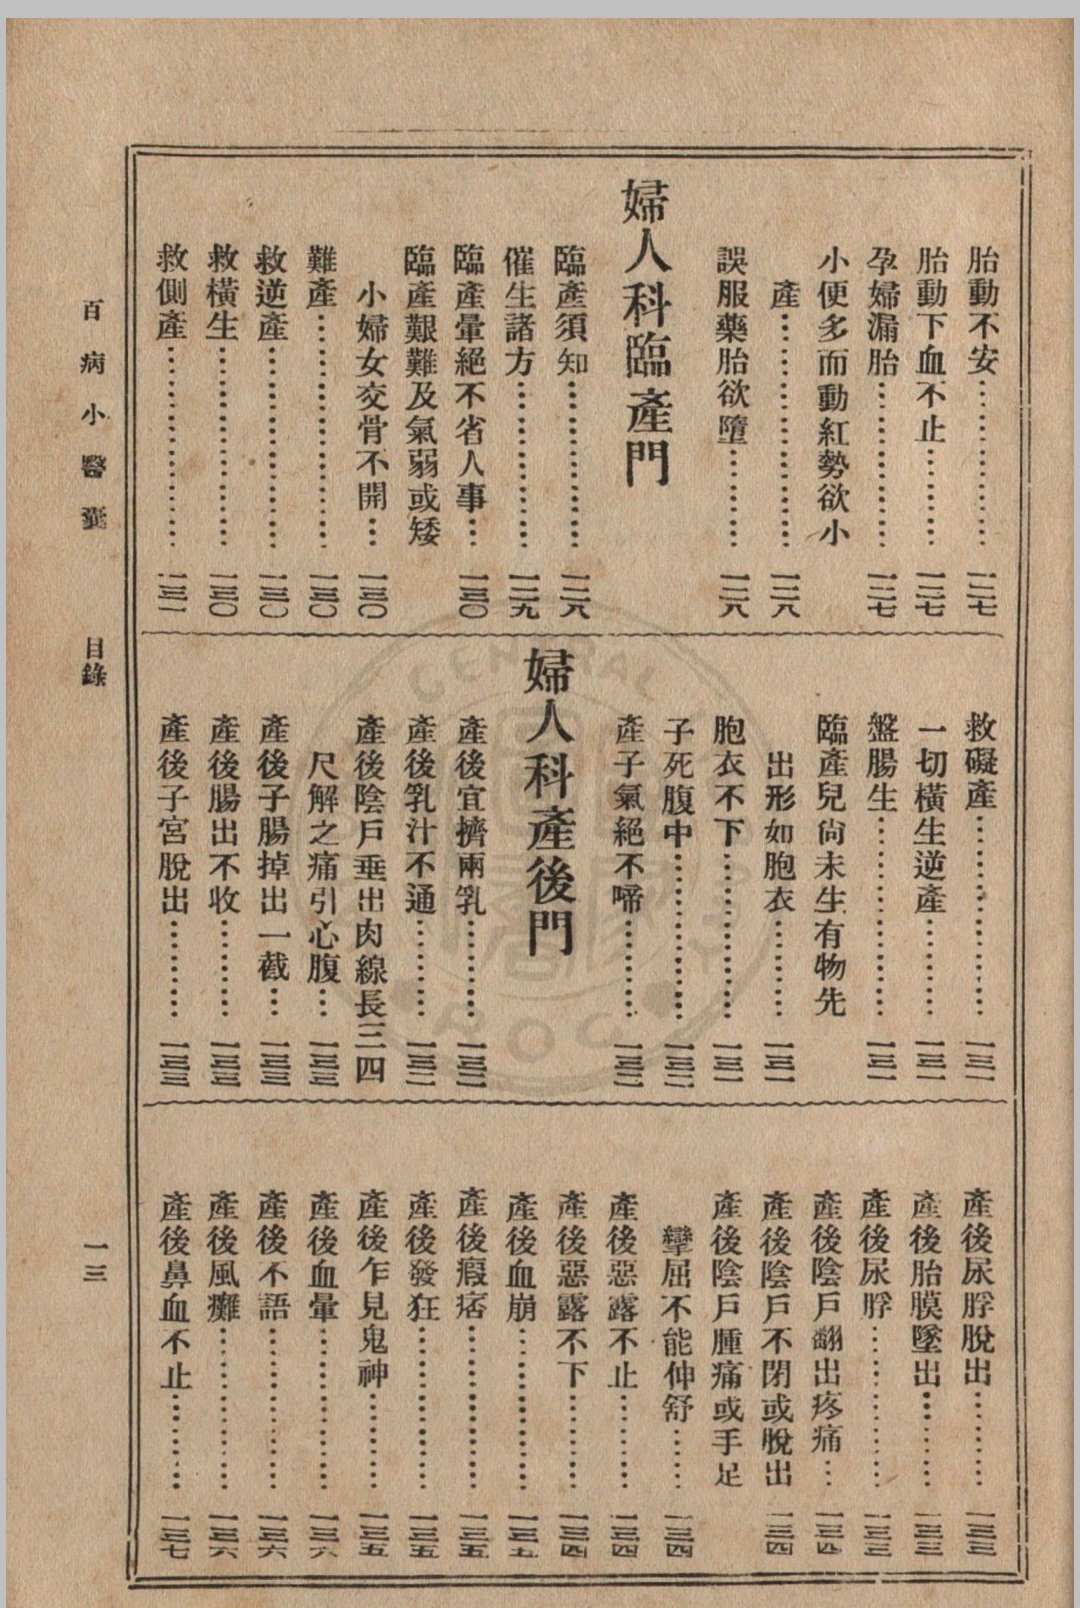 胎動不安⋯⋯⋯⋯一二七
胎動下血不止⋯⋯⋯一二七
孕婦漏胎⋯⋯⋯⋯一二七
小便多而動紅勢欲小
產⋯⋯⋯⋯⋯一二八
誤服藥胎欲墮⋯⋯⋯一二八
婦人科臨產門
臨產須知⋯⋯⋯⋯一二八
催生諸方⋯⋯⋯⋯一二九
臨產暈絕不省人事⋯一三〇
臨產艱難及氣弱或矮
小婦女交骨不開⋯一三〇
難產⋯⋯⋯⋯⋯一三〇
救逆產⋯⋯⋯⋯⋯一三〇
救橫生⋯⋯⋯⋯⋯一三〇
救側產⋯⋯⋯⋯⋯一三一
救礙產⋯⋯⋯⋯⋯一三一
一切橫生逆產⋯⋯⋯一三一
盤腸生⋯⋯⋯⋯⋯一三一
臨產兒尙未生有物先
出形如胞衣⋯⋯⋯一三一
胞衣不下⋯⋯⋯⋯一三一
子死腹中⋯⋯⋯⋯一三二
產子氣絕不啼⋯⋯⋯一三二
婦人科產後門
產後宜擠兩乳⋯⋯⋯一三二
產後乳汁不通⋯⋯⋯一三二
產後陰戶垂出肉線長三四
尺解之痛引心腹⋯一三三
產後子腸掉出一截⋯一三三
產後腸出不收⋯⋯⋯一三三
產後子宮脫出⋯⋯⋯一三三
產後尿脬脫出⋯⋯⋯一三三
產後胎膜墜出⋯⋯⋯一三三
產後尿脬⋯⋯⋯⋯一三三
產後陰戶翻出疼痛⋯一三四
產後陰戶不閉或脫出一三四
產後陰戶腫痛或手足
攣屈不能伸舒⋯⋯一三四
產後惡露不止⋯⋯⋯一三四
產後惡露不下⋯⋯⋯一三四
產後血崩⋯⋯⋯⋯一三五
產後瘕痞⋯⋯⋯⋯一三五
產後發狂⋯⋯⋯⋯一三五
產後乍見鬼神⋯⋯⋯一三五
產後血暈⋯⋯⋯⋯一三六
產後不語⋯⋯⋯⋯一三六
產後風癱⋯⋯⋯⋯一三六
產後鼻血不止⋯⋯⋯一三七
百病小醫囊 目錄 一三